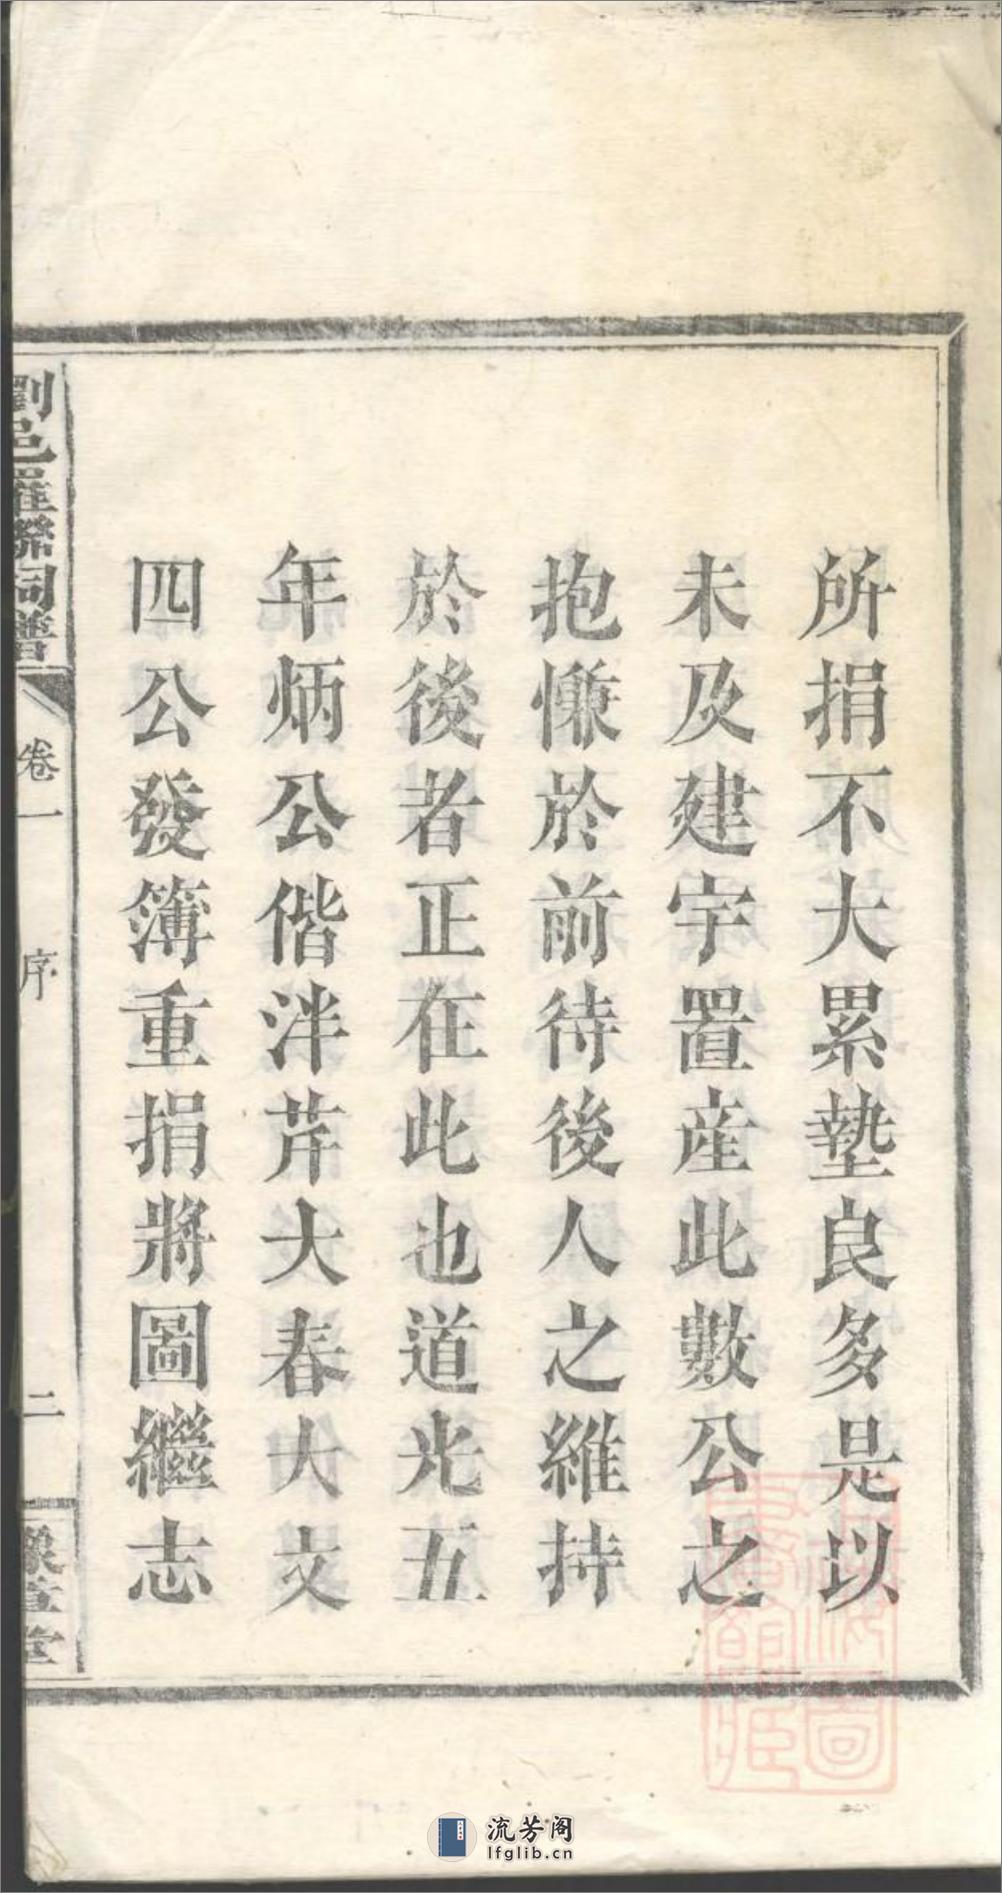 所捐不大累墊良多是以
未及建宇置産此數公之
抱慊於前待後人之維持
於後者正在此也道光五
年炳公偕泮芹大春大文
四公發簿重捐將圖繼志
瀏邑羅聯祠譜
卷一
序
二
豫章堂
上海圖書館藏
流芳阁
lfglib.cn